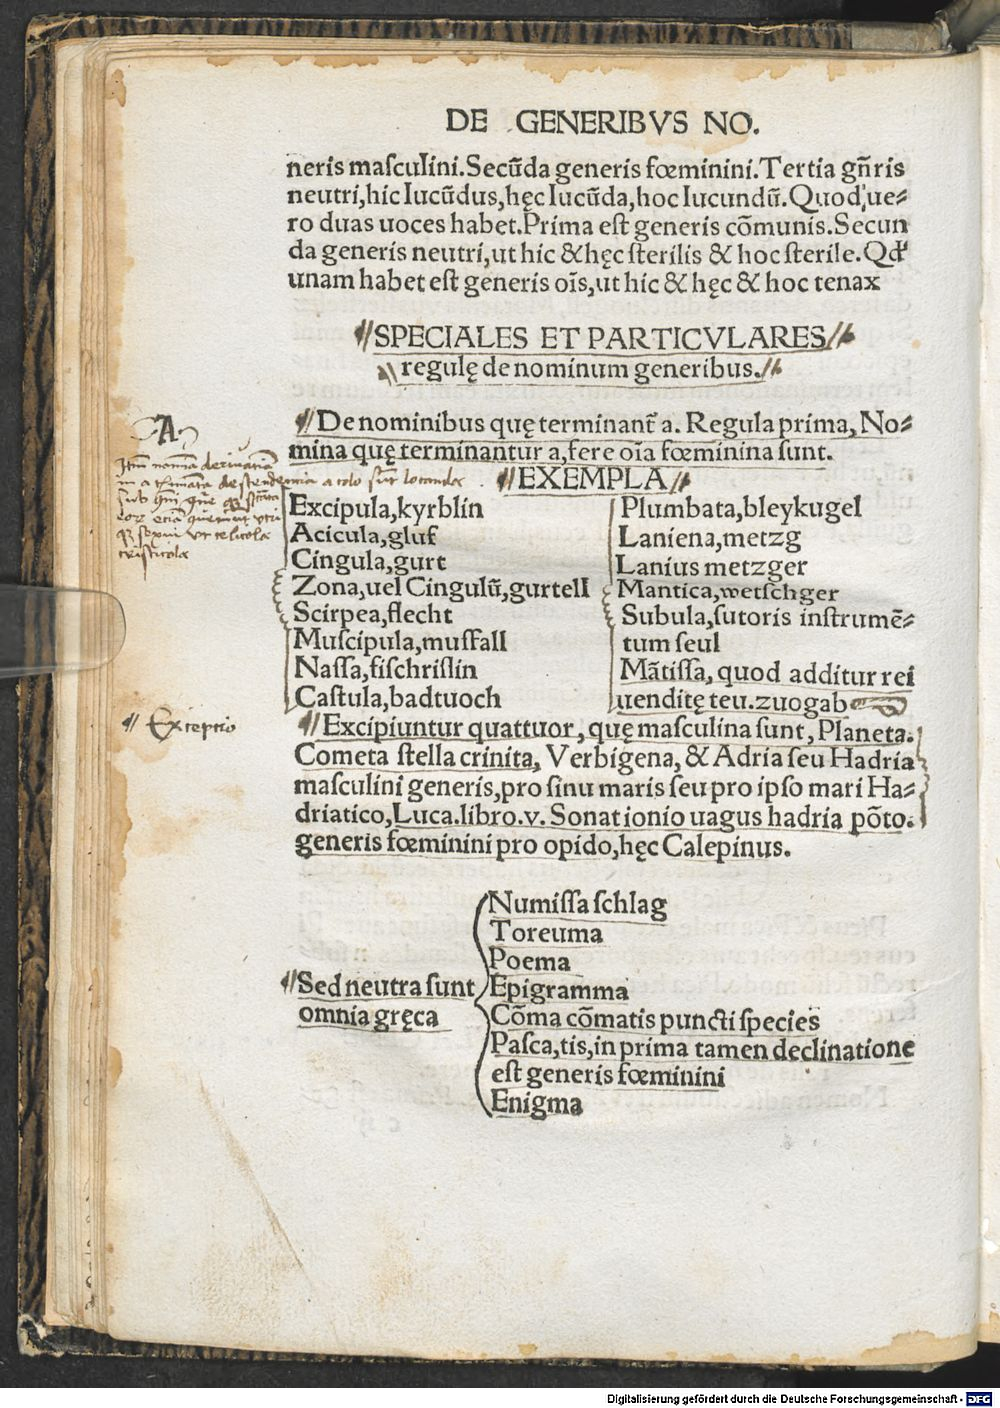 DE GENERIBVS NO.
neris maſculini. Secūda generis fœminini. Tertia gñris
neutri, hic Iucūdus, hęc Iucūda, hoc Iucundū. Quod ue⸗
ro duas uoces habet. Prima eſt generis cōmunis. Secun
da generis neutri, ut hic & hęc ſterilis & hoc ſterile. Qd'
unam habet eſt generis oīs, ut hic & hęc & hoc tenax
SPECIALES ET PARTICVLARES
regulę de nominum generibus.
A
De nominibus quę terminant̃ a. Regula prima, No⸗
mina quę terminantur a, fere oīa fœminina ſunt.
EXEMPLA
Excipula, kyrblin
Acicula, gluf
Cingula, gurt
Zona, uel Cingulū, gurtell
Scirpea, flecht
Muſcipula, muſfall
Naſſa, fiſchriſlin
Caſtula, badtuoch
Plumbata, bleykugel
Laniena, metzg
Lanius metzger
Mantica, wetſchger
Subula, ſutoris inſtrumē⸗
tum ſeul
Mātiſſa, quod additur rei
uenditę teu. zuogab
Exceptio
Excipiuntur quattuor, quę maſculina ſunt, Planeta.
Cometa ſtella crinita, Verbigena, & Adria ſeu Hadria
maſculini generis, pro ſinu maris ſeu pro ipſo mari Ha⸗
driatico, Luca. libro. v. Sonat ionio uagus hadria pōto.
generis fœminini pro opido, hęc Calepinus.
Sed neutra ſunt
omnia gręca
Numiſſa ſchlag
Toreuma
Poema
Epigramma
Cōma cōmatis puncti ſpecies
Paſca, tis, in prima tamen declinatione
eſt generis fœminini
Enigma
Digitalisierung gefördert durch die Deutsche Forschungsgemeinschaft - DFG